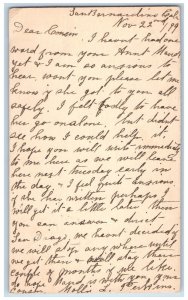 San Bernardino Cal
Nov 22nd
Dear Cousin
I havent had one
word from your Anna Mary
yet & I am so anxious to
hear, wont you please let me
know if she got to you all
safely. I felt badly to have
her go on alone but didnt
see how I could help it.
I hope you will write immediately
to me here as we will leave
here next Tuesday early in
the day & I feel quite anxious
if she has written perhaps I
will get it a little later then
you can answer & direct
San Diago, we havnt decided
we will go or any where right
we get there & will stay there
couple of months if we like.
do hope Hands is with you &